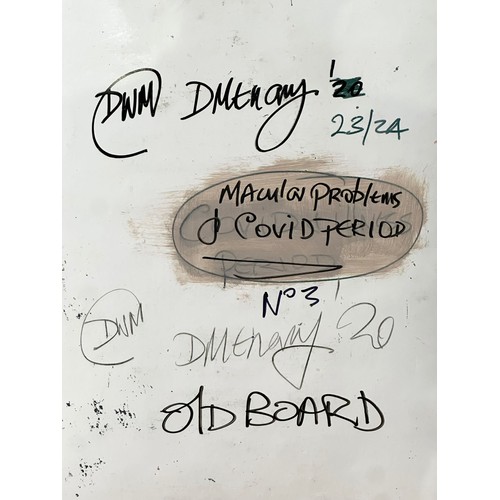 DWM DMthary '20
23/24
Macular Problems
& COVID PERIOD
PERIOD
No 3
DWM DMthary '20
OLD BOARD